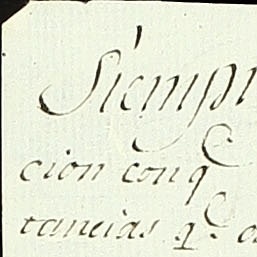 Siemp
cion conq
tancias q.e